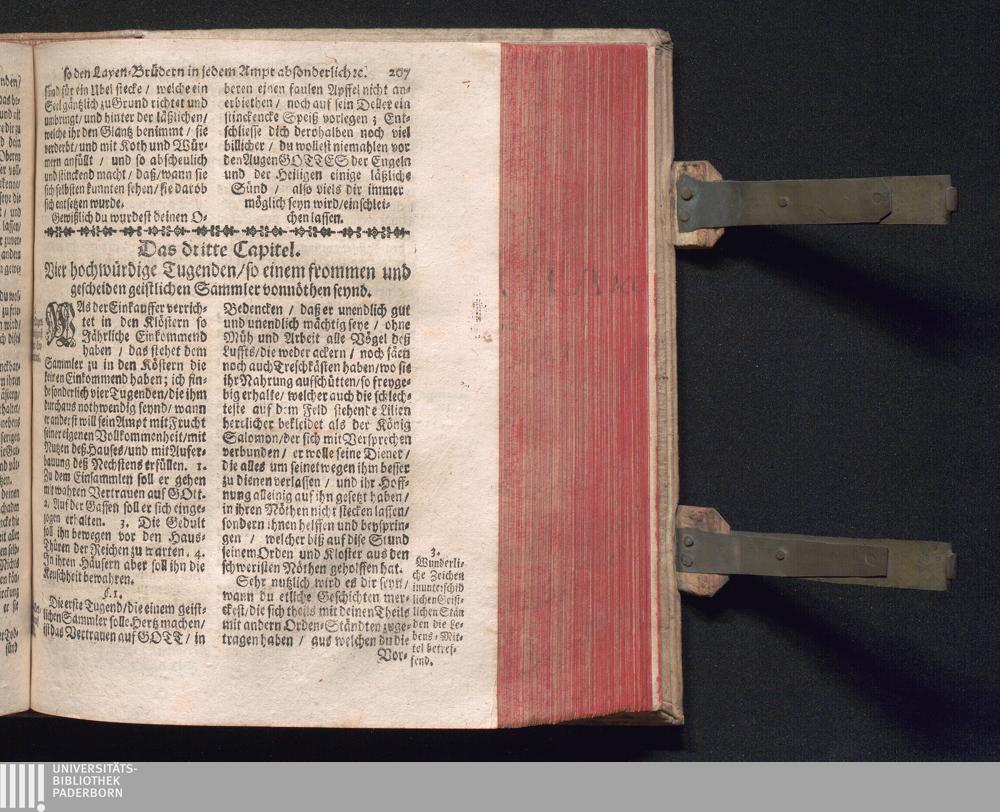 so den Layen-Brüdern in jedem Ampt absonderlich ꝛc. 207
sind für ein Ubel stecke / welche ein
Seel gäntzlich zu Grund richtet und
umbringt / und hinter der läßlichen /
welche ihr den Glantz benimmt / sie
verderbt / und mit Koth und Wür-
mern anfüllt / und so abscheulich
und stinckend macht / daß / wann sie
sich selbsten kunnten sehen / sie darob
sich entsetzen wurde.
Gewißlich du wurdest deinen O-
beren einen faulen Apffel nicht an-
erbiethen / noch auf sein Deller ein
stinckende Speiß vorlegen ; Ent-
schliesse dich derohalben noch viel
billicher / du wollest niemahlen vor
den Augen GOTTES der Engeln
und der Heiligen einige läßliche
Sünd / also viels dir immer
möglich seyn wird / einschlei-
chen lassen.
Das dritte Capitel.
Vier hochwürdige Tugenden / so einem frommen und
gescheiden geistlichen Sammler vonnöthen seynd.
WAs der Einkauffer verrich-
tet in den Klöstern so
Jährliche Einkommend
haben / das stehet dem
Sammler zu in den Köstern die
keinen Einkommend haben ; ich fin-
de sonderlich vier Tugenden / die ihm
durchaus nothwendig seynd / wann
er anderst will sein Ampt mit Frucht
seiner eigenen Vollkommenheit / mit
Nutzen deß Hauses / und mit Aufer-
bauung deß Nechstens erfüllen. 1.
Zu dem Einsammlen soll er gehen
mit wahren Vertrauen auf GOtt.
2. Auf der Gassen soll er sich einge-
zogen erhalten. 3. Die Gedult
soll ihn bewegen vor den Haus-
Thüren der Reichen zu warten. 4.
In ihren Häusern aber soll ihn die
Keuschheit bewahren.
§. 1.
Die erste Tugend / die einem geist-
lichen Sammler solle Hertz machen /
ist das Vertrauen auf GOTT / in
Bedencken / daß er unendlich gut
und unendlich mächtig seye / ohne
Müh und Arbeit alle Vögel deß
Luffts / die weder ackern / noch säen
noch auch Treschkästen haben / wo sie
ihr Nahrung aufschütten / so freyge-
big erhalte / welcher auch die schlech-
teste auf dem Feld stehende Lilien
herrlicher bekleidet als der König
Salomon / der sich mit Versprechen
verbunden / er wolle seine Diener /
die alles um seinetwegen ihm besser
zu dienen verlassen / und ihr Hoff-
nung alleinig auf ihn gesetzt haben /
in ihren Nöthen nicht stecken lassen /
sondern ihnen helffen und beyspring-
en / welcher biß auf dise Stund
seinem Orden und Kloster aus den
schweristen Nöthen geholffen hat.
Sehr nutzlich wird es dir seyn /
wann du etliche Geschichten mer-
ckest / die sich theils mit deinen Theils
mit andern Orden-Ständten zuge-
tragen haben / aus welchen du die
Vor-
3.
Wunderli-
che Zeichen
in unterschid
lichen Geist-
lichen Stän
den die Le-
bens-Mit-
tel betref-
fend.
UNIVERSITÄTS-
BIBLIOTHEK
PADERBORN